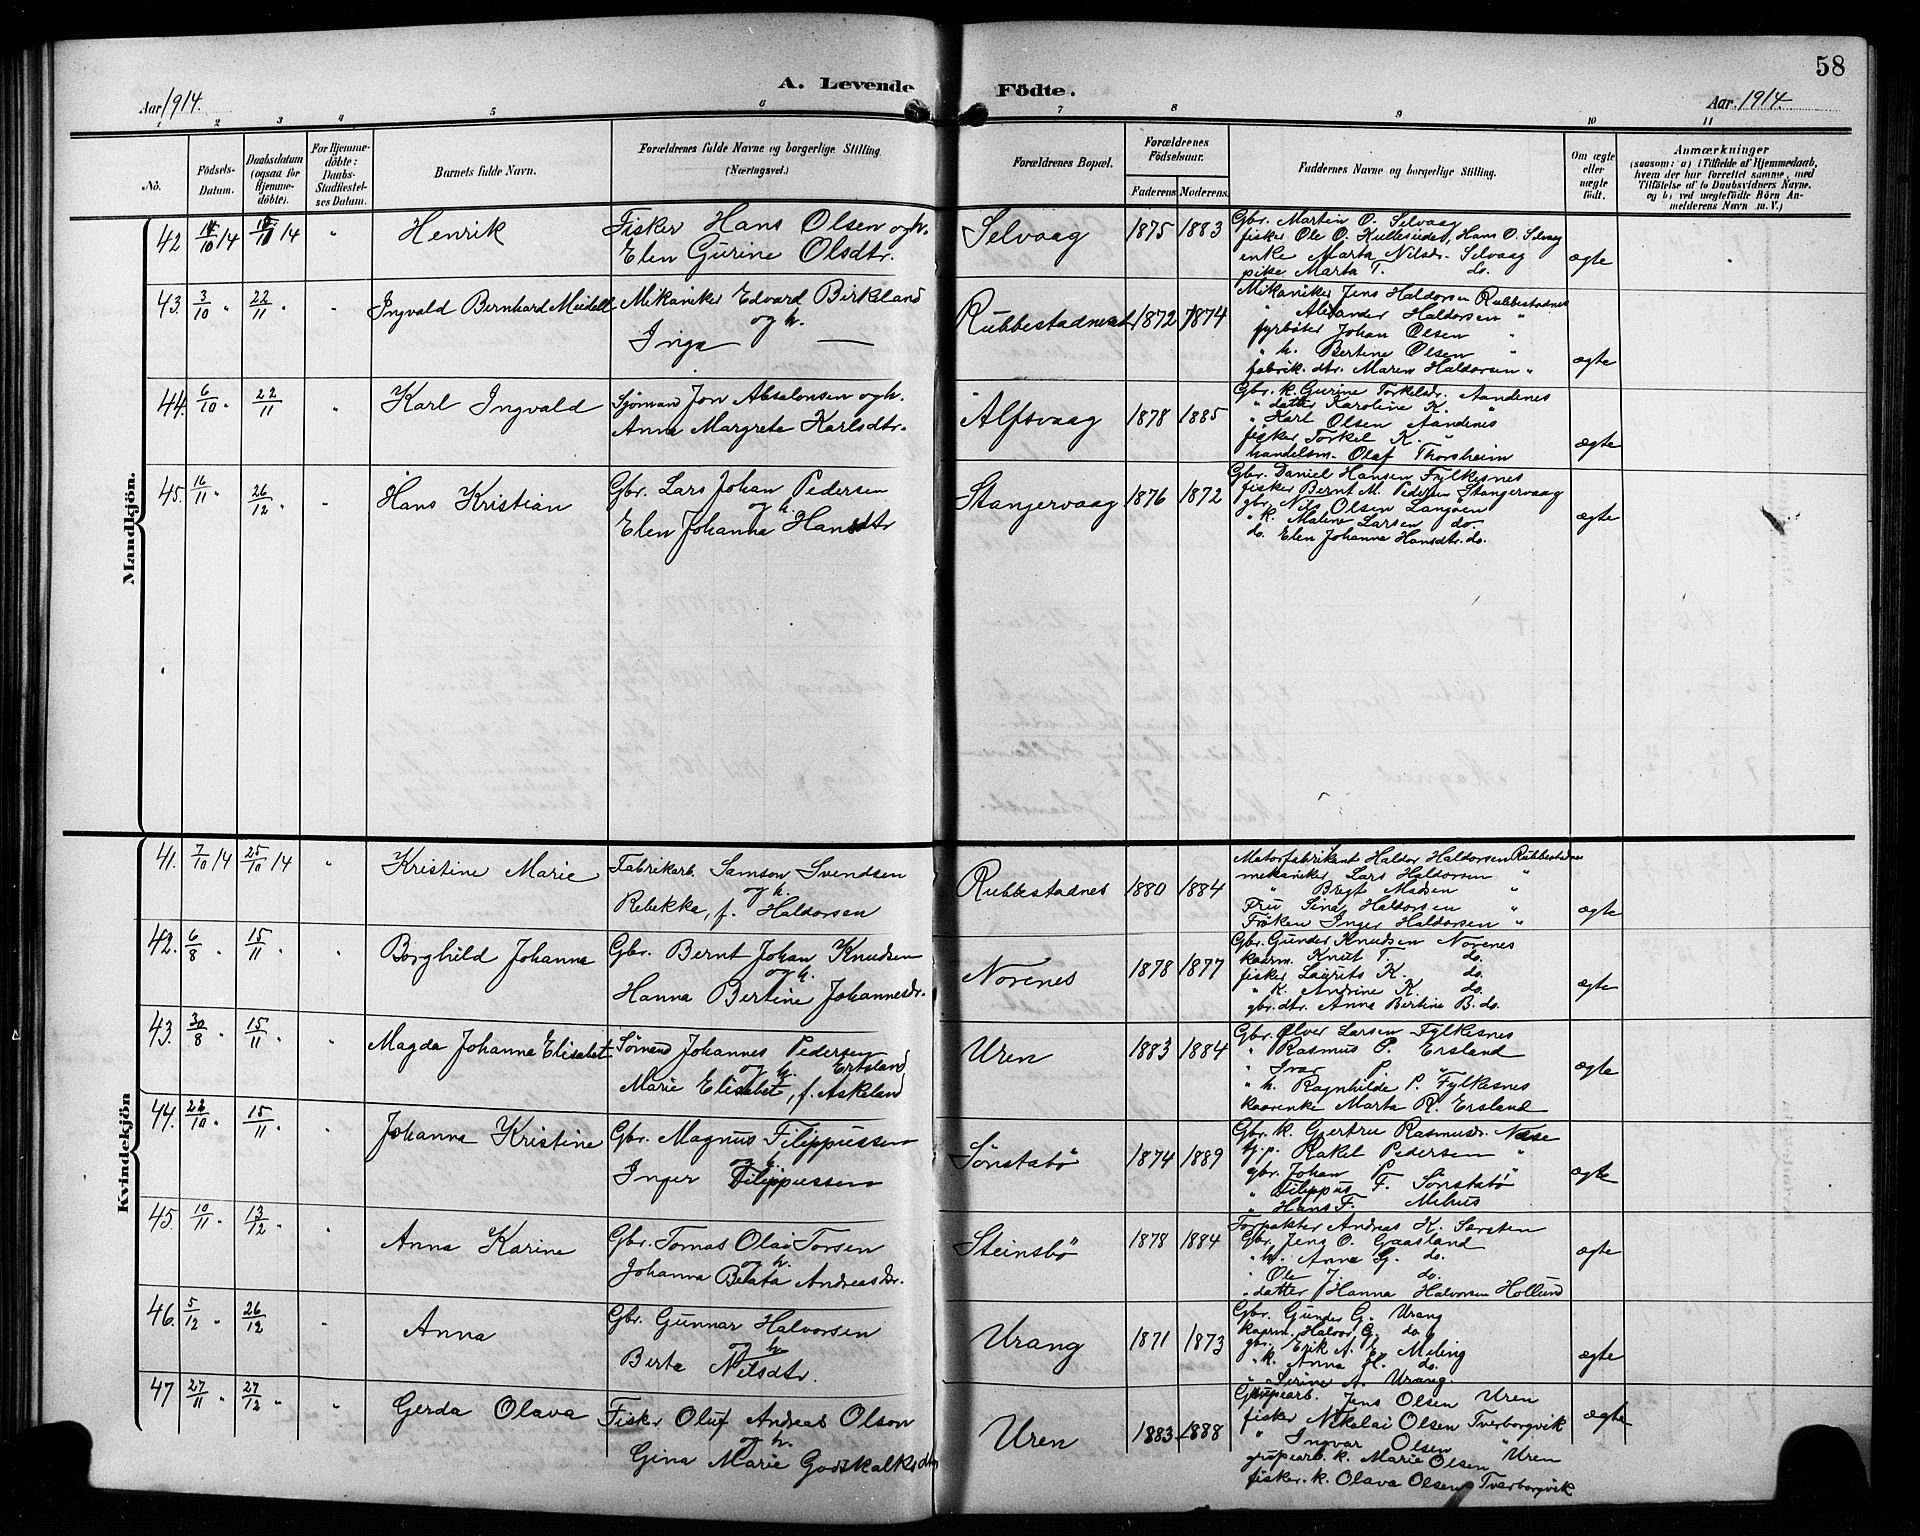 58
A. Levende Födte.
Aar 1914.
Aar 1914.
1 2 3 4 5 6 7 8 9 10 11
No.
Födsels-Datum.
Daabsdatum (ogsaa for Hjemme-döbte).
For Hjemme-döbte: Daabs-Stadfæstel-ses Datum.
Barnets fulde Navn.
Forældrenes fulde Navne og borgerlige Stilling. (Næringsvei.)
Forældrenes Bopæl.
Forældrenes Födselsaar.
Faderens. Moderens.
Faddernes Navne og borgerlige Stilling.
Om ægte eller uægte födt.
Anmærkninger
(saasom: a) i Tilfælde af Hjemmedaab, hvem der har forrettet samme, med Tilföielse af to Daabsvidners Navne. og b) ved uægtefödte Börn An-melderens Navn m. V.)
Mandkjön.
42 /10 14 /11 14 " Henrik
Fisker Hans Olsen og h.
Elen Gurine Olsdtr.
Selvaag 1875 1883
Gbr. Martin O. Selvaag
fisker Ole O. Kulleseidet, Hans O. Selvaag
enke Marta Nilsdr. Selvaag
pike Marta T. do.
ægte
43. 3/10 " 22/11 " " Ingvald Bernhard Meidell
Mikaniker Edvard Birkeland
og h.
Inga —
Rubbestadneset 1872 1874
Mikaniker Jens Haldorsen Rubbestadnes
" Alexander Haldorsen "
fyrbøter Johan Olsen "
" h. Bertine Olsen "
fabrik. dtr. Maren Haldorsen "
ægte
44. 6/10 " 22/11 " Karl Ingvald
Sjömand Jon Absalonsen og h.
Anna Margrete Karlsdtr.
Alfsvaag 1878 1885
Gbr. k. Gurine Torkelsdr. Aandenes
" datter Karoline K. "
" Karl Olsen Aandenes
fisker Torkel K. "
handelsm. Olaf Thorsheim
ægte
45. 16/11 " 26/12 " " Hans Kristian
Gbr. Lars Johan Pedersen
og h.
Elen Johanna Hansdtr
Stangervaag 1876 1872
Gbr. Daniel Hansen Fylkesnes
fisker Bernt M. Pedersen Stangervaag
gbr. Nils Olsen Langøen
" k. Malene Larsen do.
do. Elen Johanna Hansdtr. do.
ægte
Kvindekjön
41. 7/10 14 25/10 14 " Kristine Marie
Fabrikarb. Samson Svendsen
og h.
Rebekka, f. Haldorsen
Rubbestadnes 1880 1884
Motorfabrikant Haldor Haldorsen Rubbestadnes
mekaniker Lars Haldorsen "
" Brigt Madsen "
Fru Sina Haldorsen "
Fröken Inger Haldorsen "
ægte
42. 6/8 " 15/11 " " Borghild Johanna
Gbr. Bernt Johan Knudsen
og h.
Hanna Bertine Johannesdr.
Norenes 1878 1877
Gbr. Gunder Knudsen Norenes
kaarm. Knut T. do.
fisker Laurits K. do.
" k. Andrine K. do.
gbr. dtr. Anna Bertine B. do.
ægte
43. 30/8 " 15/11 " " Magda Johanna Elisabet
Sømand Johannes Pedersen
og h. Ertsland
Marie Elisabet, f. Askeland
Uren 1883 1884
Gbr. Ølver Larsen Fylkesnes
" Rasmus P. Ersland
" Ivar P. "
" h. Ragnhilde P. Fylkesnes
kaarenke Marta R. Ersland
ægte
44. 22/10 " 15/11 " " Johanna Kristine
Gbr. Magnus Filippussen
og h.
Inger Filippussen
Sönstabö 1874 1889
Gbr. k. Gjertru Rasmusdr. Nesse
tj.p. Rakel Pedersen "
gbr. Johan P. "
" Filippus F. Sönstabö
" Hans F. Mehus
ægte
45. 10/11 " 13/12 " " Anna Karine
Gbr. Tomas Olai Torsen
og h.
Johanna Beata Andreasdr.
Steinsbö 1878 1884
Forpakter Andreas K. Særsten
Gbr. Jens O. Gaasland
" h. Anna G. do.
" Ole J. do.
" datter Hanna Halvorsen Hollund
ægte
46. 5/12 " 26/12 " Anna
Gbr. Gunnar Halvorsen
og h.
Berta Nilsdtr.
Urang 1871 1873
Gbr. Gunder G. Urang
kaarm. Halvor G. do
gbr. Erik A. E. Meling
" k. Anna H. do.
" Serine A. Urang.
ægte
47 27/11 " 27/12 " " Gerda Olava
Fisker Oluf Andreas Olson
og h.
Gina Marie Godskalksdtr
Uren 1883 1888
Grupearb. Jens Olsen Uren
fisker Nikolai Olsen Tverborgvik
" Ingvar Olsen "
grupearb. k. Marie Olsen Uren
fisker. k. Olava Olsen Tverborgvik
ægte